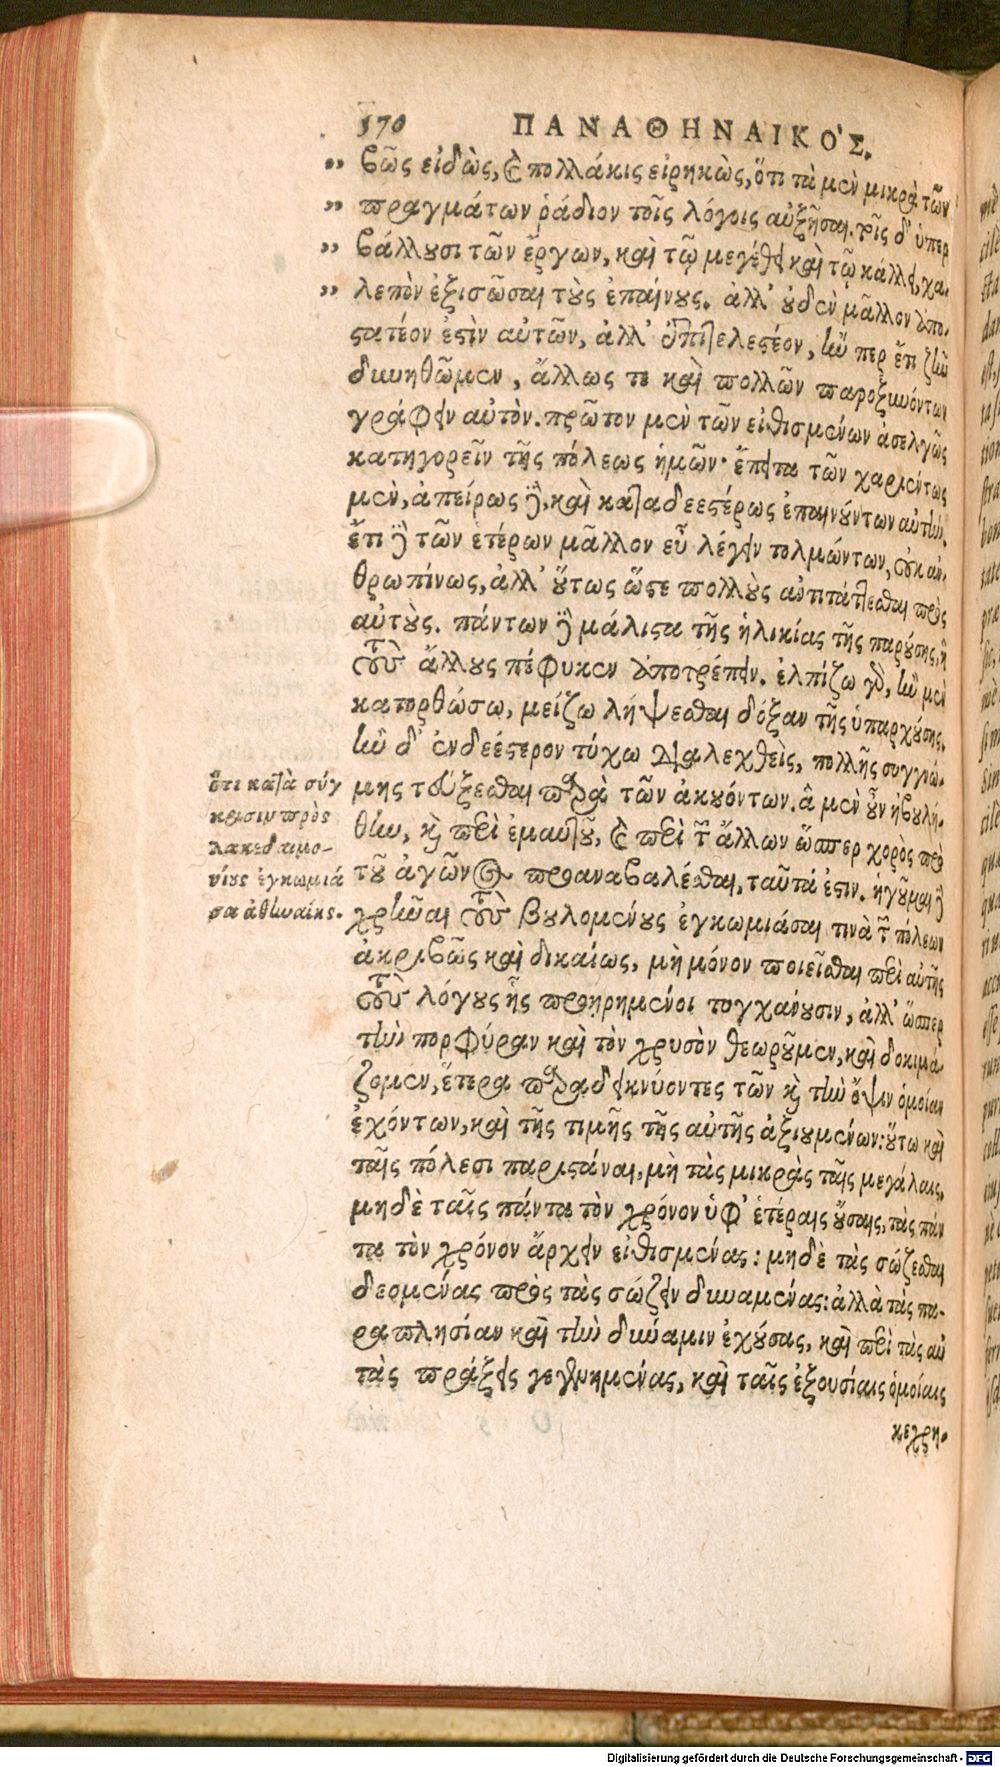 570 ΠΑΝΑΘΗΝΑΙΚΟ'Σ.
„ βῶς εἰδὼς, καὶ πολλάκις εἰρηκὼς, ὅτι τὰ μὲν μικρὰ τῶν
„ πραγμάτων ῥάδιον τοῖς λόγοις αὐξῆσαι. τοῖς δ' ὑπερ
„ βάλλουσι τῶν ἔργων, καὶ τῷ μεγέθει καὶ τῷ κάλλει, χα-
„ λεπὸν ἐξισῶσαι τοὺς ἐπαίνους. ἀλλ' οὐδὲν μᾶλλον ἀπο-
στατέον ἐστὶν αὐτῶν, ἀλλ' ἐπιτελεστέον, ἤν περ ἔτι ζῆν
δυνηθῶμεν, ἄλλως τε καὶ πολλῶν παροξυνόντων
γράφειν αὐτόν. πρῶτον μὲν τῶν εἰθισμένων ἀσελγῶς
κατηγορεῖν τῆς πόλεως ἡμῶν· ἔπειτα τῶν χαριέντως
μὲν, ἀπείρως δὲ, καὶ καταδεεστέρως ἐπαινούντων αὐτήν.
ἔτι δὲ τῶν ἑτέρων μᾶλλον εὖ λέγειν τολμώντων, οὐκ ἀν-
θρωπίνως, ἀλλ' οὕτως ὥστε πολλοὺς ἀντιτάττεσθαι πρὸς
αὐτούς. πάντων δὲ μάλιστα τῆς ἡλικίας τῆς παρούσης, ἣ
τοὺς ἄλλους πέφυκεν ἀποτρέπειν. ἐλπίζω γὰρ, ἢν μὲν
κατορθώσω, μείζω λήψεσθαι δόξαν τῆς ὑπαρχούσης,
ἢν δ' ἐνδεέστερον τύχω διαλεχθεὶς, πολλῆς συγγνώ-
μης τεύξεσθαι παρὰ τῶν ἀκουόντων. ἃ μὲν οὖν ἠβουλή-
θην, καὶ περὶ ἐμαυτοῦ, καὶ περὶ τῶν ἄλλων ὥσπερ χορὸς πρὸ
τοῦ ἀγῶνος προαναβαλέσθαι, ταῦτά ἐστιν. ἡγοῦμαι δὲ
χρῆναι τοὺς βουλομένους ἐγκωμιάσαι τινὰ τῶν πόλεων
ἀκριβῶς καὶ δικαίως, μὴ μόνον ποιεῖσθαι περὶ αὐτῆς
τοὺς λόγους ἧς προῃρημένοι τυγχάνουσιν, ἀλλ' ὥσπερ
τὴν πορφύραν καὶ τὸν χρυσὸν θεωροῦμεν, καὶ δοκιμά-
ζομεν, ἕτερα παραδεικνύοντες τῶν καὶ τὴν ὄψιν ὁμοίαν
ἐχόντων, καὶ τῆς τιμῆς τῆς αὐτῆς ἀξιουμένων: οὕτω καὶ
ταῖς πόλεσι παριστάναι, μὴ τὰς μικρὰς ταῖς μεγάλαις,
μηδὲ ταῖς πάντα τὸν χρόνον ὑφ' ἑτέραις οὔσαις, τὰς πάν
τα τὸν χρόνον ἄρχειν εἰθισμένας: μηδὲ τὰς σώζεσθαι
δεομένας πρὸς τὰς σώζειν δυναμένας: ἀλλὰ τὰς πα-
ραπλησίαν καὶ τὴν δύναμιν ἐχούσας, καὶ περὶ τὰς αὐ
τὰς πράξεις γεγενημένας, καὶ ταῖς ἐξουσίαις ὁμοίαις
κεχρη-
ὅτι κατὰ σύγ
κρισιν πρὸς
λακεδαιμο-
νίους ἐγκωμιά
σα ἀθηναίους.
Digitalisierung gefördert durch die Deutsche Forschungsgemeinschaft - DFG